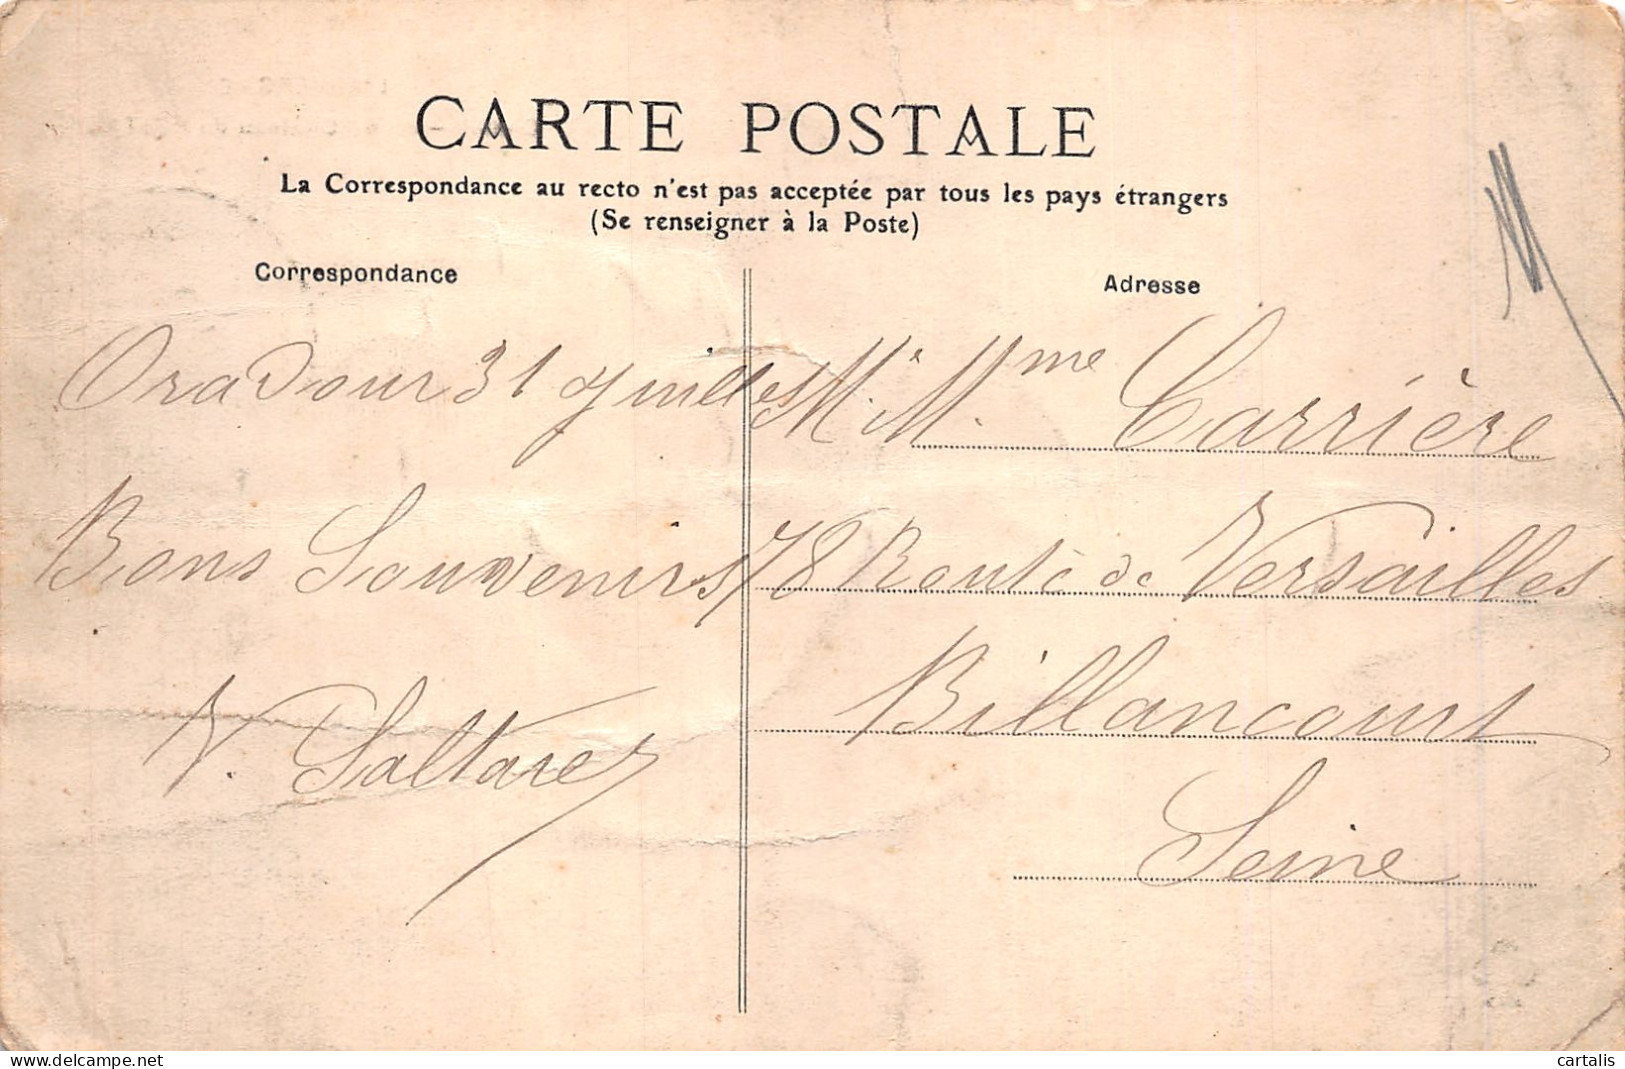 CARTE POSTALE
La Correspondance au recto n'est pas acceptée par tous les pays étrangers
(Se renseigner à la Poste)
Correspondance
Oradour 31 Juillet
Bons Souvenirs
Adresse
M. & Mme Carrière
178 Route de Versailles
Billancourt
Seine
cartalis